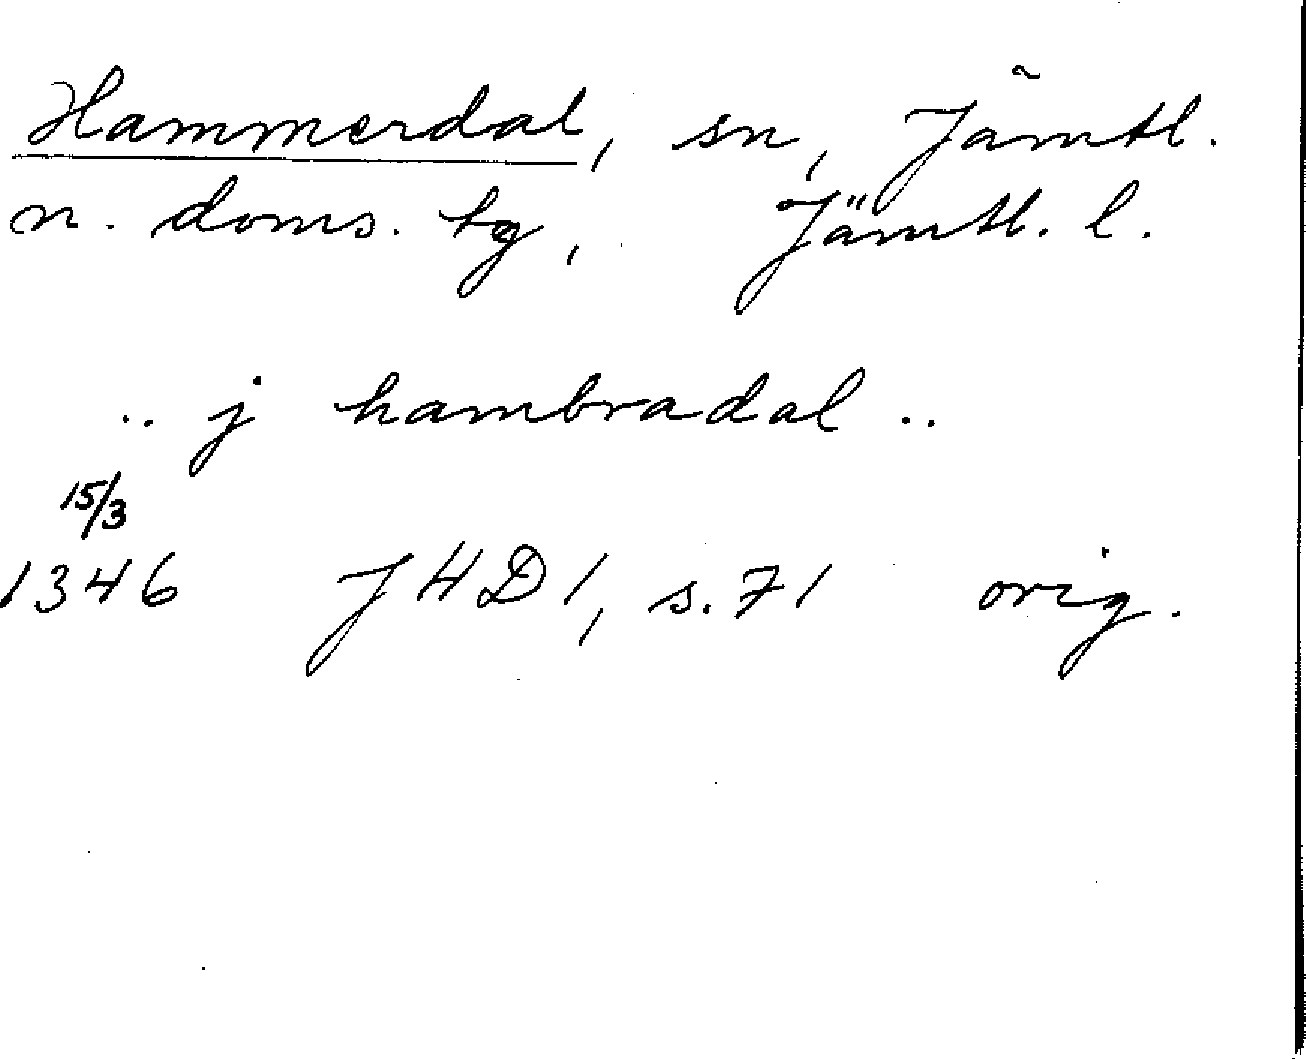 Hammerdal, sn, Jämtl.
n. doms. tg, Jämtl. l.
.. j hambradal ..
15/3
1346 JHD 1, s. 71 orig.